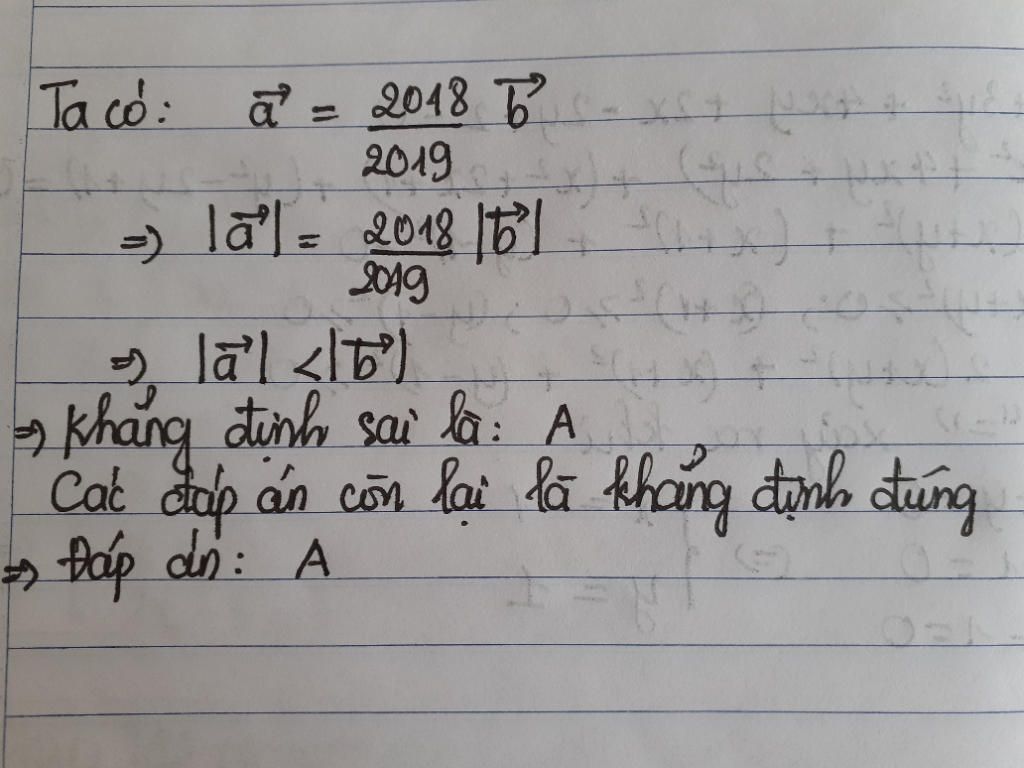 Ta có: a⃗ = 2018/2019 b⃗
=> |a⃗| = 2018/2019 |b⃗|
=> |a⃗| < |b⃗|
=> Khẳng định sai là: A
Các đáp án còn lại là khẳng định đúng
=> Đáp án: A